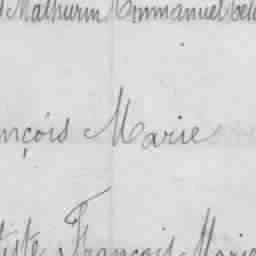 Mathurin Emmanuel
nçois Marie
tiste François Marie